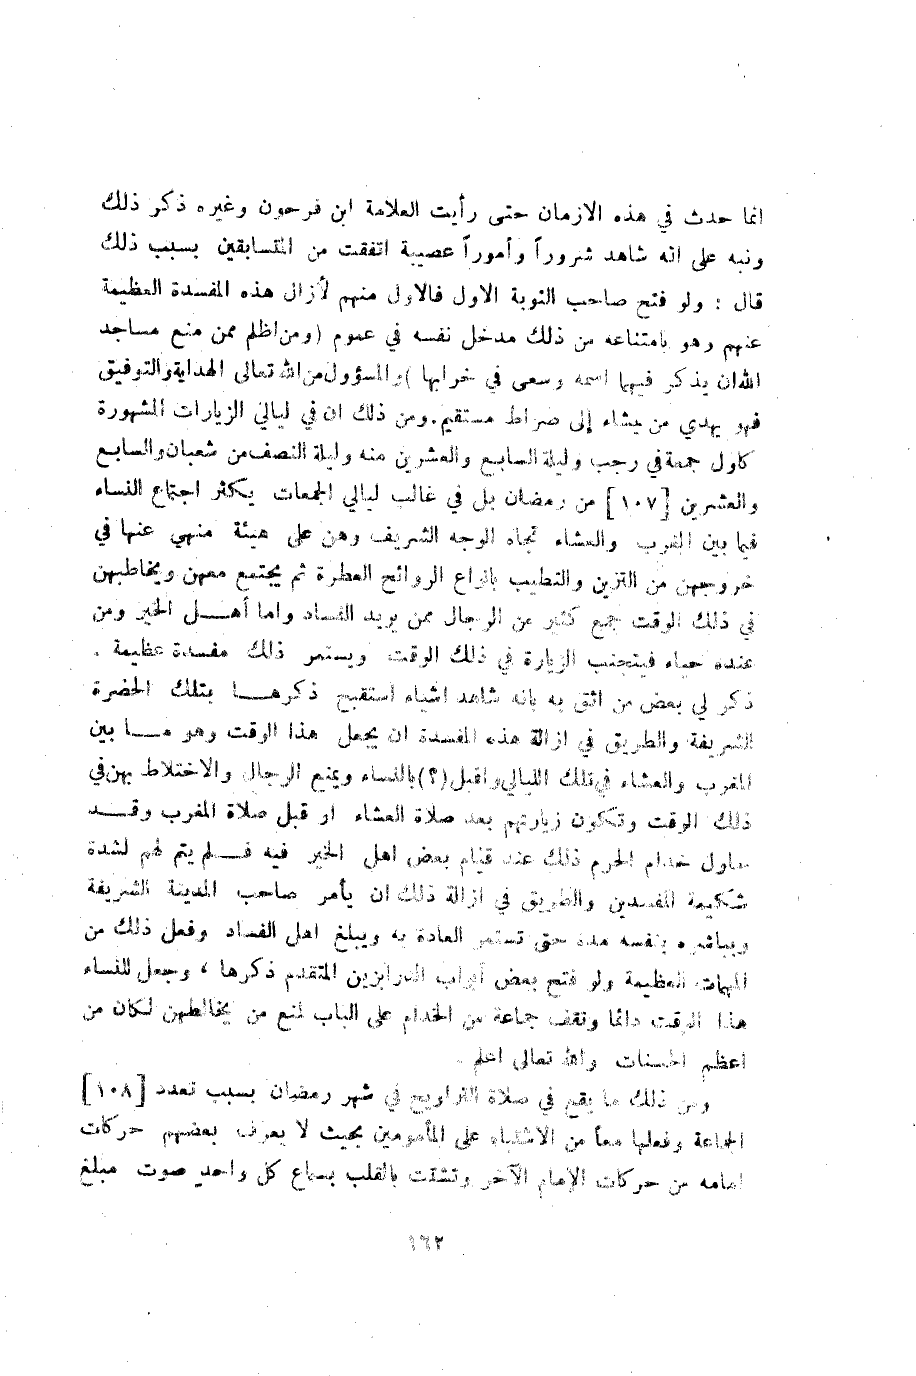 انما حدث في هذه الازمان حتى رأيت العلامة ابن فرحون وغيره ذكر ذلك
ونبه على انه شاهد شروراً وأموراً عصيبة اتفقت من المتسابقين بسبب ذلك
قال : ولو فتح صاحب النوبة الاول فالاول منهم لأزال هذه المفسدة العظيمة
عنهم وهو بامتناعه من ذلك مدخل نفسه في عموم (ومن اظلم ممن منع مساجد
الله ان يذكر فيها اسمه وسعى في خرابها )والمسؤول من الله تعالى الهداية والتوفيق
فهو يهدي من يشاء إلى صراط مستقيم.ومن ذلك ان في ليالي الزيارات المشهورة
كاول جمعة في رجب وليلة السابع والعشرين منه وليلة النصف من شعبان والسابع
والعشرين [١٠٧] من رمضان بل في غالب ليالي الجمعات يكثر اجتماع النساء
فيما بين المغرب والعشاء تجاه الوجه الشريف وهن على هيئة منهي عنها في
خروجهن من التزين والتطيب بانواع الروائح العطرة ثم يجتمع معهن ويخاطبهن
في ذلك الوقت جمع كثير من الرجال ممن يريد الفساد واما أهل الخير ومن
عنده حياء فيتجنب الزيارة في ذلك الوقت ويستمر ذلك مفسدة عظيمة .
ذكر لي بعض من اثق به بانه شاهد اشياء استقبح ذكرها بتلك الحضرة
الشريفة والطريق في ازالة هذه المفسدة ان يجعل هذا الوقت وهو ما بين
المغرب والعشاء في تلك الليالي واقبل(؟)بالنساء ويمنع الرجال والاختلاط بهن في
ذلك الوقت وتكون زيارتهم بعد صلاة العشاء او قبل صلاة المغرب وقد
حاول خدام الحرم ذلك عند قيام بعض اهل الخير فيه فلم يتم لهم لشدة
شكيمة المفسدين والطريق في ازالة ذلك ان يأمر صاحب المدينة الشريفة
ويباشره بنفسه مدة حتى تستمر العادة به ويبلغ اهل الفساد وفعل ذلك من
المهمات العظيمة ولو فتح بعض أبواب الدرابزين المتقدم ذكرها ، وجعل للنساء
هذا الوقت دائما وتقف جماعة من الخدام على الباب لمنع من يخالطهن لكان من
اعظم الحسنات والله تعالى اعلم .
ومن ذلك ما يقع في صلاة التراويح في شهر رمضان بسبب تعدد [١٠٨]
الجماعة وفعلها معاً من الاشتباه على المأمومين بحيث لا يعرف بعضهم حركات
امامه من حركات الإمام الآخر وتشتت بالقلب بسماع كل واحد صوت مبلغ
١٦٢